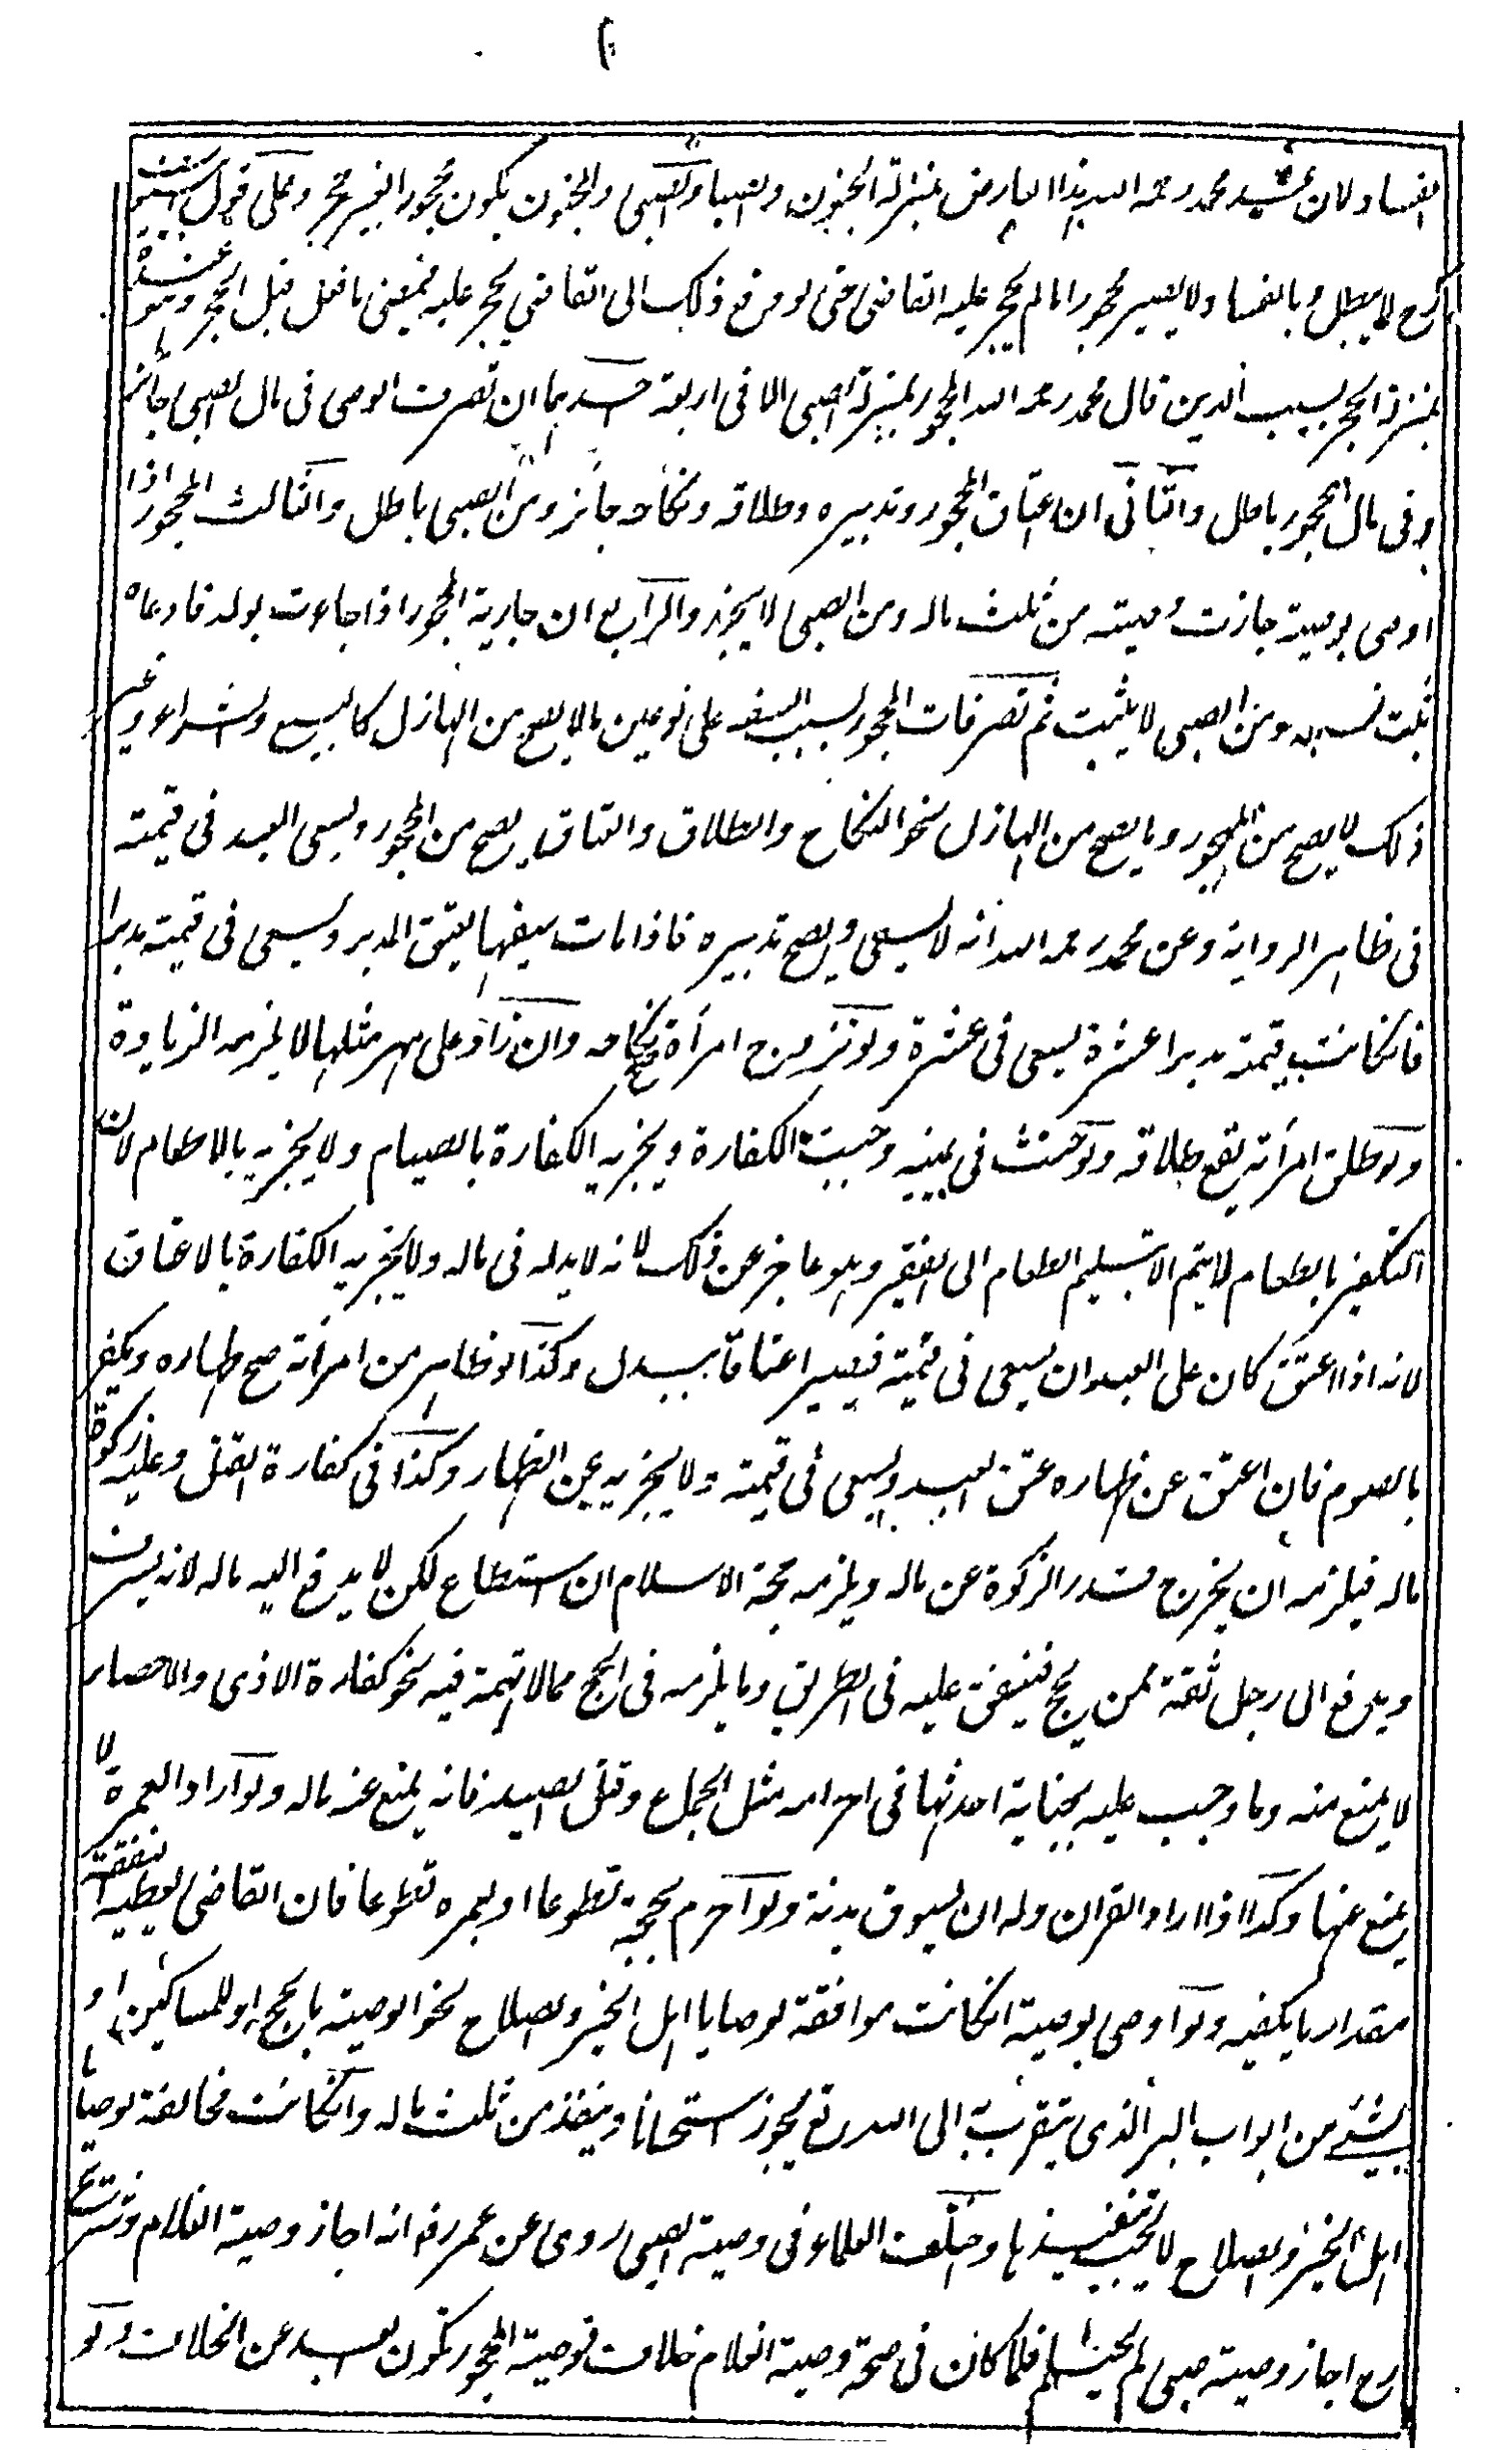 الفساد ولان عند محمد رحمه الله هذا العارض بمنزلة الجنون والصبا والصبي والمجنون يكون محجورا بغير حجر وعلى قول
رح لا يبطل بالفساد ولا يصير محجورا ما لم يحجر عليه القاضي حتى لو رفع ذلك الى القاضي يحجر عليه فيمضي ما فعل قبل الحجر وهو عنده
بمنزلة الحجر بسبب الدين قال محمد رحمه الله المحجور بمنزلة الصبي الا في اربعة احدها ان تصرف الوصي في مال الصبي جائز
وفي مال المحجور باطل والثاني ان اعتاق المحجور وتدبيره وطلاقه ونكاحه جائز ومن الصبي باطل والثالث المحجور اذا
اوصى بوصية جازت وصيته من ثلث ماله ومن الصبي لا يجوز والرابع ان جارية المحجور اذا جاءت بولد فادعاه
ثبت نسبه ومن الصبي لا يثبت ثم تصرفات المحجور بسبب السفه على نوعين ما لا يصح من الهازل كالبيع والشراء وغير
ذلك لا يصح من المحجور وما يصح من الهازل نحو النكاح والطلاق والعتاق يصح من المحجور ويسعى العبد في قيمته
في ظاهر الرواية وعن محمد رحمه الله انه لا يسعى ويصح تدبيره فاذا مات سفيها يعتق المدبر ويسعى في قيمته مدبرا
فان كانت قيمته مدبرا عشرة يسعى في عشرة ولو تزوج امرأة صح نكاحه وان زاد على مهر مثلها لا يلزمه الزيادة
ولو طلق امرأته يقع طلاقه ولو حنث في يمينه وجبت الكفارة ويجزيه الكفارة بالصيام ولا يجزيه بالاطعام لان
التكفير بالطعام لا يتم الا بتسليم الطعام الى الفقير وهو عاجز عن ذلك لانه لا يد له في ماله ولا يجزيه الكفارة بالاعتاق
لانه اذا اعتق كان على العبد ان يسعى في قيمته فيصير اعتاقا ببدل وكذا لو ظاهر من امرأته صح ظهاره ويكفر
بالصوم فان اعتق عن ظهاره عتق العبد ويسعى في قيمته ولا يجزيه عن الظهار وكذا في كفارة القتل وعليه زكوة
ماله فيلزمه ان يخرج قدر الزكوة عن ماله ويلزمه حجة الاسلام ان استطاع لكن لا يدفع اليه ماله لانه يسرف
ويدفع الى رجل ثقة ممن يحج فينفق عليه في الطريق وما يلزمه في الحج مما لا تهمة فيه نحو كفارة الاذى والاحصار
لا يمنع منه وما وجب عليه بجناية احدثها في احرامه مثل الجماع وقتل الصيد فانه يمنع عنه ماله ولو اراد العمرة لا
يمنع عنها وكذا اذا اراد القران وله ان يسوق بدنة ولو احرم بحجة تطوعا او بعمره تطوعا فان القاضي يعطيه لنفقته
مقدار ما يكفيه ولو اوصى بوصية ان كانت موافقة لوصايا اهل الخير والصلاح نحو الوصية بالحج او للمساكين او
بشيء من ابواب البر الذي يتقرب به الى الله تع يجوز استحسانا وينفذ من ثلث ماله وان كانت مخالفة لوصايا
اهل الخير والصلاح لا يجب تنفيذها واختلف العلماء في وصية الصبي روي عن عمر رض انه اجاز وصية الغلام وشريح
رح اجاز وصية صبي لم يحتلم فلما كان في صحة وصية الغلام خلاف فوصية المحجور تكون ابعد عن الخلاف ولو